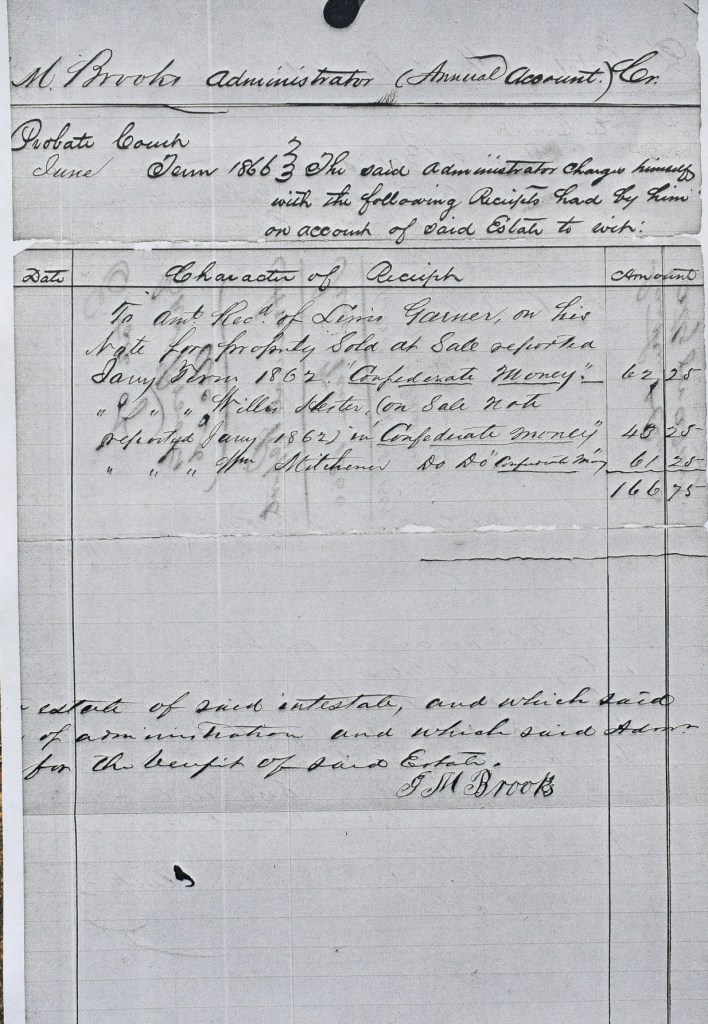 M. Brooks Administrator (Annual Account.) Cr.
Probate Court
June Term 1866 } The said Administrator charges himself
with the following Receipts had by him
on account of said Estate to wit:
Date Character of Receipt Amount
To Amt. Recd of Garner, on his
Note for property Sold at Sale reported
Jany Term 1862. "Confederate Money" 62 25
" " " Willis Hester, (on Sale Note
reported Jany 1862) in "Confederate money" 43 25
" " " Wm Mitchener Do Do " 61 25
166 75
estate of said intestate, and which said
of administration and which said Admr
for the benefit of said Estate.
J M Brooks